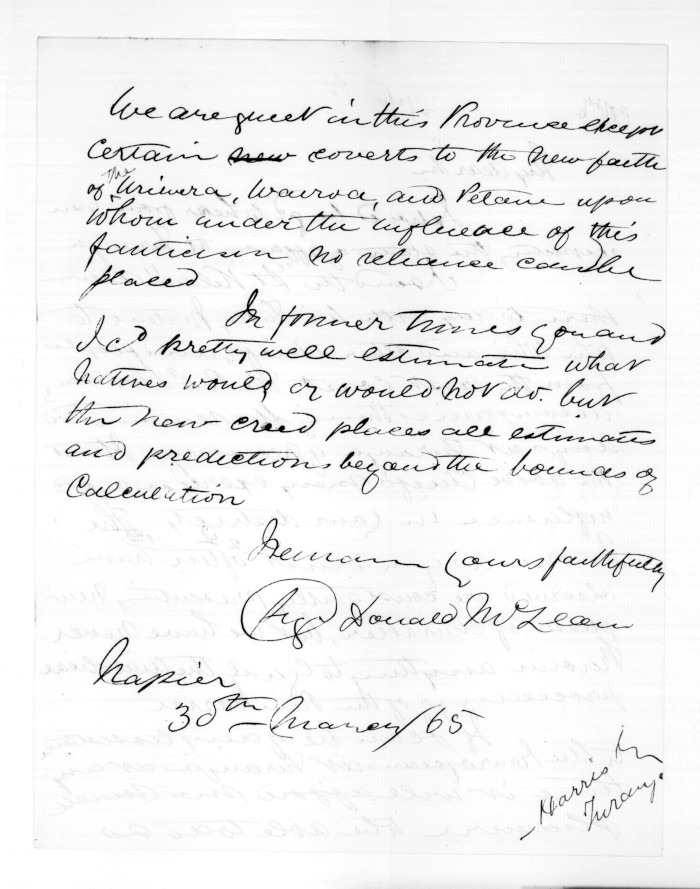 We are quiet in this Province except
certain new coverts to the new faith
of the Uriwera, Wairoa, and Petane upon
whom under the influence of this
fanticism no reliance can be
placed
In former times you and
I cd pretty well estimate what
natives would, or would not do. but
the new creed places all estimates
and predictions beyond the bounds of
Calculation
I remain yours faithfully
(Sigd) Donald McLean
Napier
30th March/65
Harris
Turanga